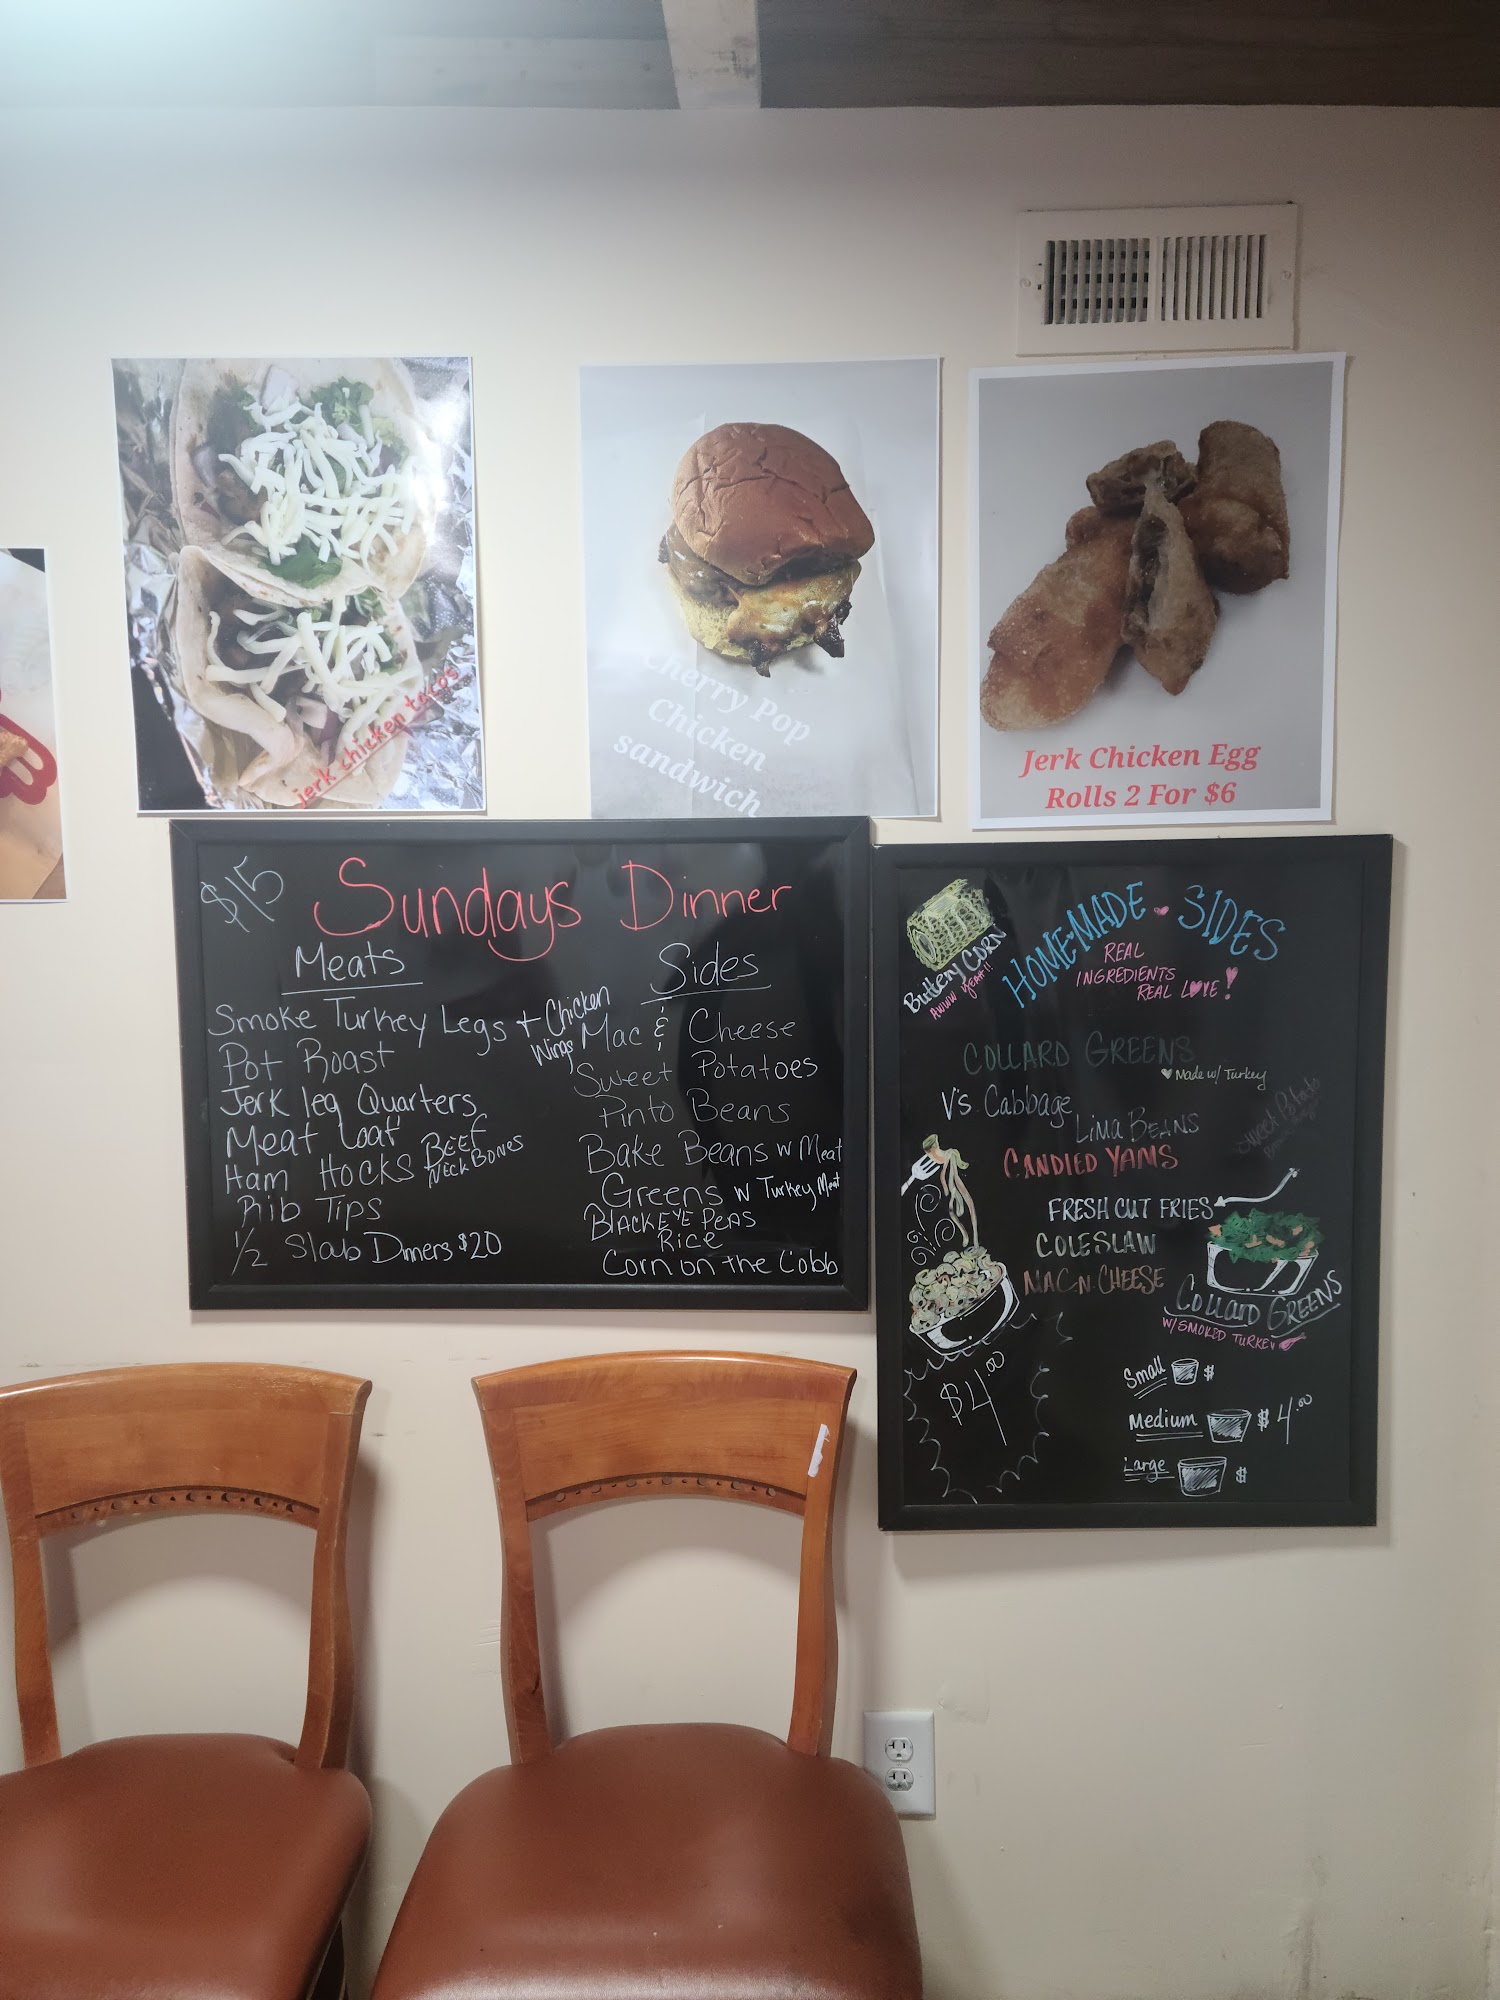 jerk chicken tacos
Cherry Pop
Chicken
sandwich
Jerk Chicken Egg
Rolls 2 For $6
$15
Sundays Dinner
Meats
Smoke Turkey Legs + Chicken
Wings
Pot Roast
Jerk leg Quarters
Meat Loaf
Ham Hocks BEEF
Neck Bones
Rib Tips
1/2 Slab Dinners $20
Sides
Mac & Cheese
Sweet Potatoes
Pinto Beans
Bake Beans w Meat
Greens w Turkey Meat
BLACKEYE PEAS
RICE
Corn on the Cobb
Buttery CORN
AWWW YEAH!!
HOME-MADE SIDES
REAL
INGREDIENTS
REAL LOVE!
COLLARD GREENS
Made w/ Turkey
V's Cabbage
LIMA BEANS
Sweet Potato
CANDIED YAMS
FRESH CUT FRIES
COLESLAW
MAC N CHEESE
COLLARD GREENS
W/ SMOKED TURKEY
$4.00
Small $
Medium $4.00
Large $